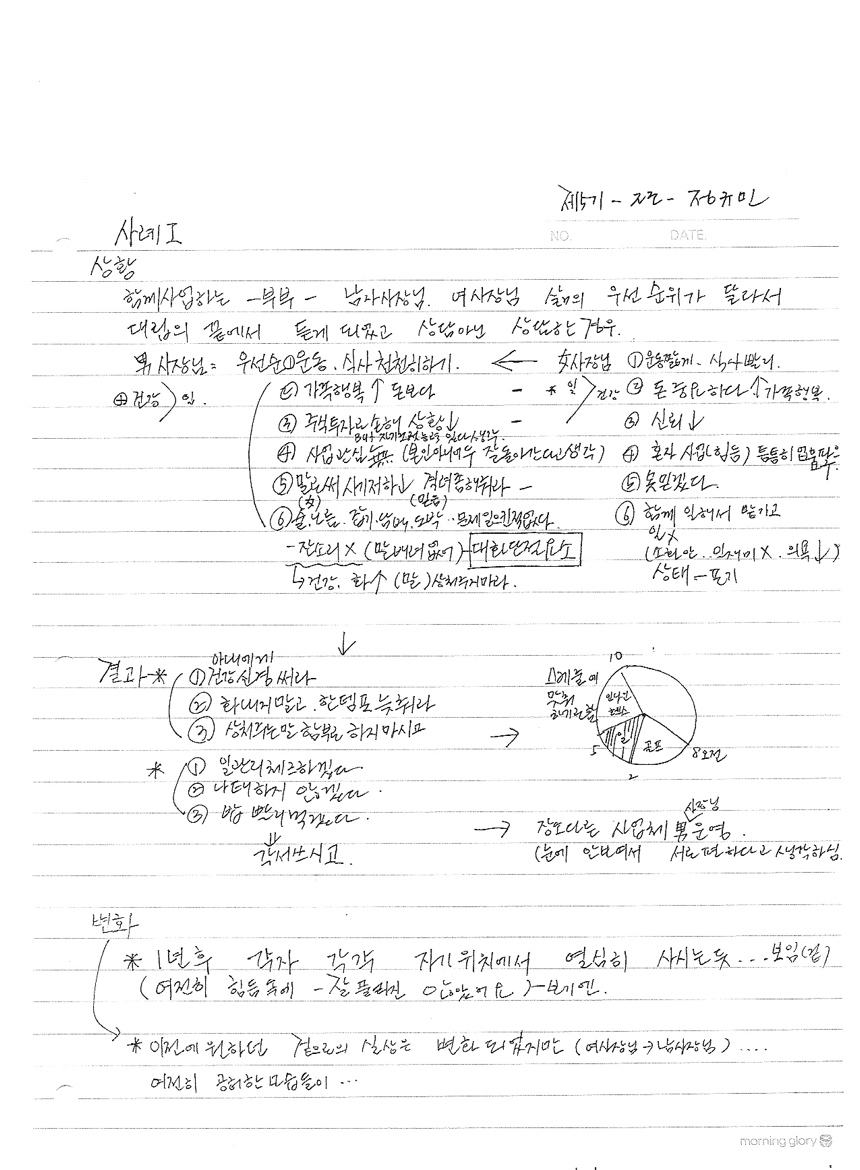 제5기 - 지준 - 정규민
NO. DATE.
사례 I
상황
함께사업하는 -부부 - 남자사장님. 여사장님 삶의 우선순위가 달라서
대립의 끝에서 듣게 되었고 상담아닌 상담하는 경우.
男사장님: 우선순 ① 운동. 식사 천천히하기. ← 女사장님 ① 운동짧게. 식사 빨리.
⊕ 건강 > 일. ② 가족행복 ↑ 돈보다 - * 일 > 건강 ② 돈 중요하다 ↑ 가족행복.
③ 주식투자로 손해 상황↓ - ③ 신뢰↓
④ 사업관심 無 (본인아니여두 잘돌아간다고생각) ④ 혼자 사업(힘듬)
⑤ 말로써 사기저하↓ 격려좀해줘라 - ⑤ 못믿겠다.
⑥ 술. 노름. 잡기. 담배. 도박.. 문제일으킨적없다. ⑥ 함께 일해서 맡기고
- 잔소리 X (말배려없어) - 대화단절요소
일X
(소화안. 인재미X. 의욕↓)
↳ 건강. 화↑ (말) 상처주지마라.
상태 - 포기
↓
결과 - * 아내에게
① 건강신경써라
② 화내지말고. 한템포 늦춰라
③ 상처되는말 함부로 하지마시고 →
스케줄에
맞춰
10
일
골프
5
2
8 오전
* ① 일관리체크하겠다
② 나태하지 않겠다.
③ 밥 빨리먹겠다.
⇓
각서쓰시고.
→ 장소다른 사업체 男사장님 운영.
(눈에 안보여서 서로편하다고 생각하심.
변화
* 1년후 각자 각각 자기위치에서 열심히 사시는듯... 보임(겉)
(여전히 힘듬속에 - 잘 풀려진 않았어요) - 보기엔.
* 이전에 원하던 겉으로의 실상은 변화 되었지만 (여사장님→남사장님) ....
여전히 공허한모습들이 ...
morning glory